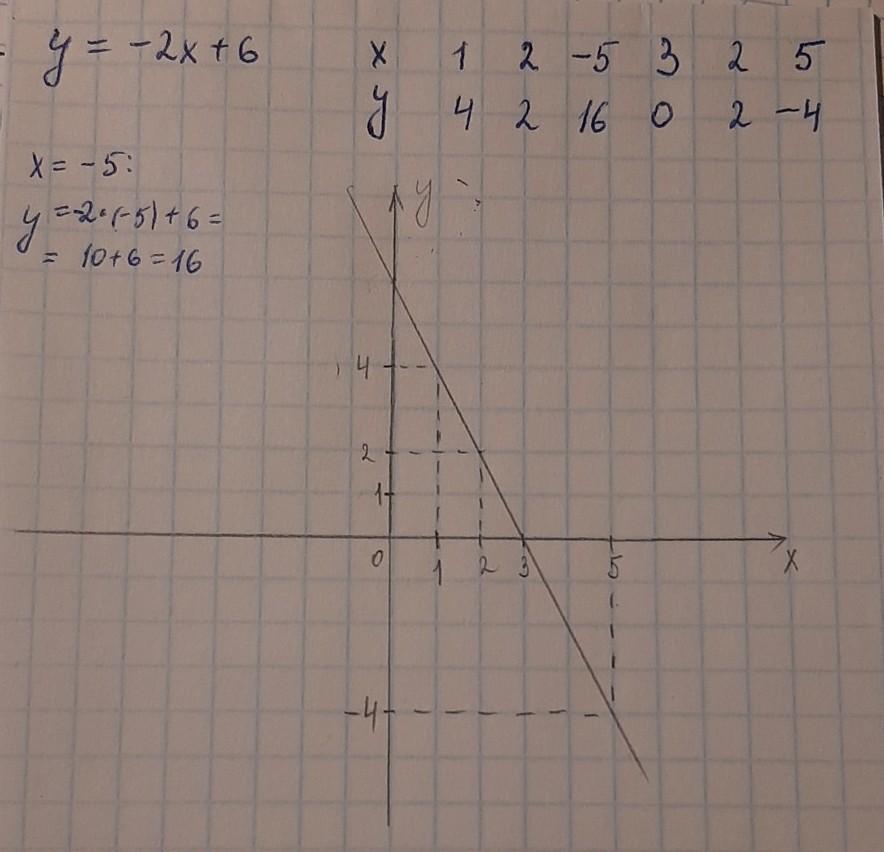 y = -2x + 6
x 1 2 -5 3 2 5
y 4 2 16 0 2 -4
x = -5:
y = -2·(-5) + 6 =
= 10 + 6 = 16
y
4
2
1
0 1 2 3 5 x
-4